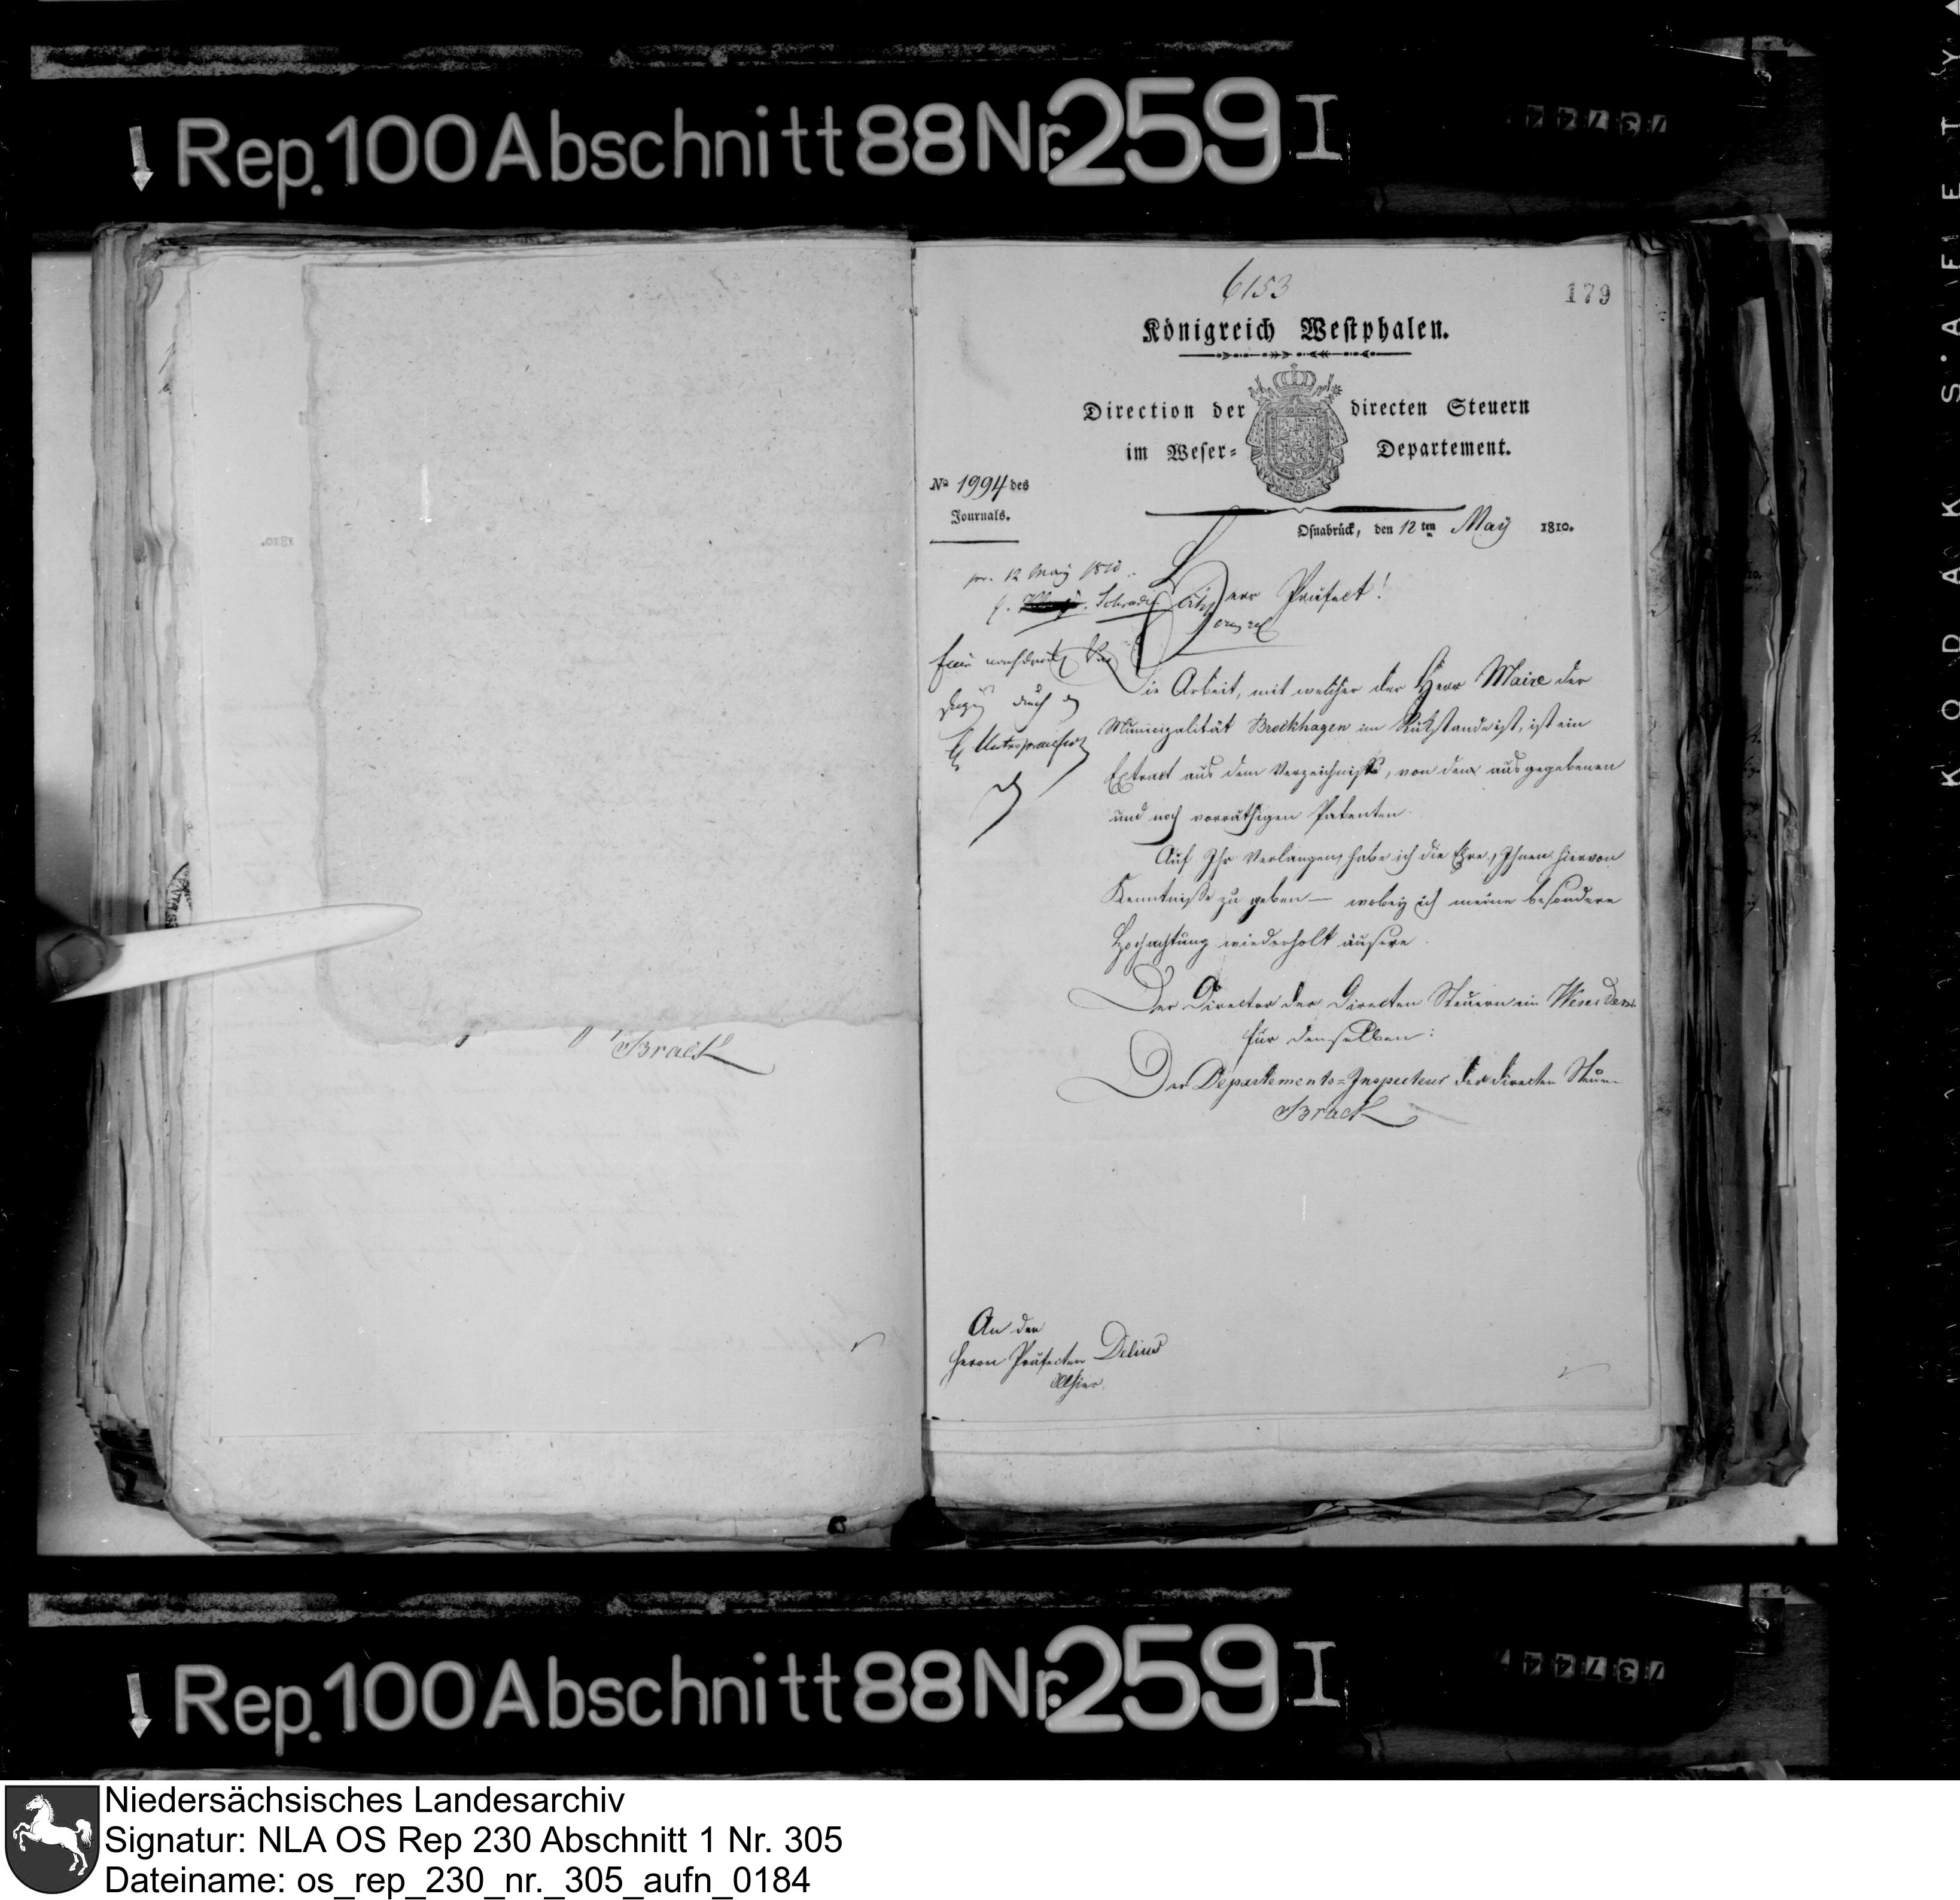 Rep. 100 Abschnitt 88 Nr. 259 I
6153
179
Königreich Westphalen.
Direction der directen Steuern
im Weser- Departement.
No 1994 des
Journals.
Osnabrück, den 12 ten May 1810.
pr. 12 May 1810.
Schrader
Herr Präfect!
Die Arbeit, mit welcher der Herr Maire der
Municipalität Brockhagen im Rückstande ist, ist ein
Extract aus dem Verzeichnisse, von den ausgegebenen
und noch vorräthigen Patenten.
Auf Ihr Verlangen, habe ich die Ehre, Ihnen hiervon
Kenntnisse zu geben — wobey ich meine besondere
Hochachtung wiederholt äusere.
Der Director der Directen Steuern im Weser
für denselben:
Der Departements-Inspecteur der directen Steuern
Brack
Brack
An den
Herrn Präfecten Delius
Allhier
Rep. 100 Abschnitt 88 Nr. 259 I
KODAK
SAFETY
Niedersächsisches Landesarchiv
Signatur: NLA OS Rep 230 Abschnitt 1 Nr. 305
Dateiname: os_rep_230_nr._305_aufn_0184